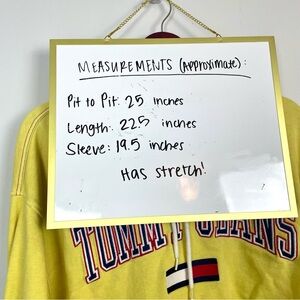 MEASUREMENTS (Approximate):
Pit to Pit: 25 inches
Length: 22.5 inches
Sleeve: 19.5 inches
Has stretch!
TOMMY JEANS